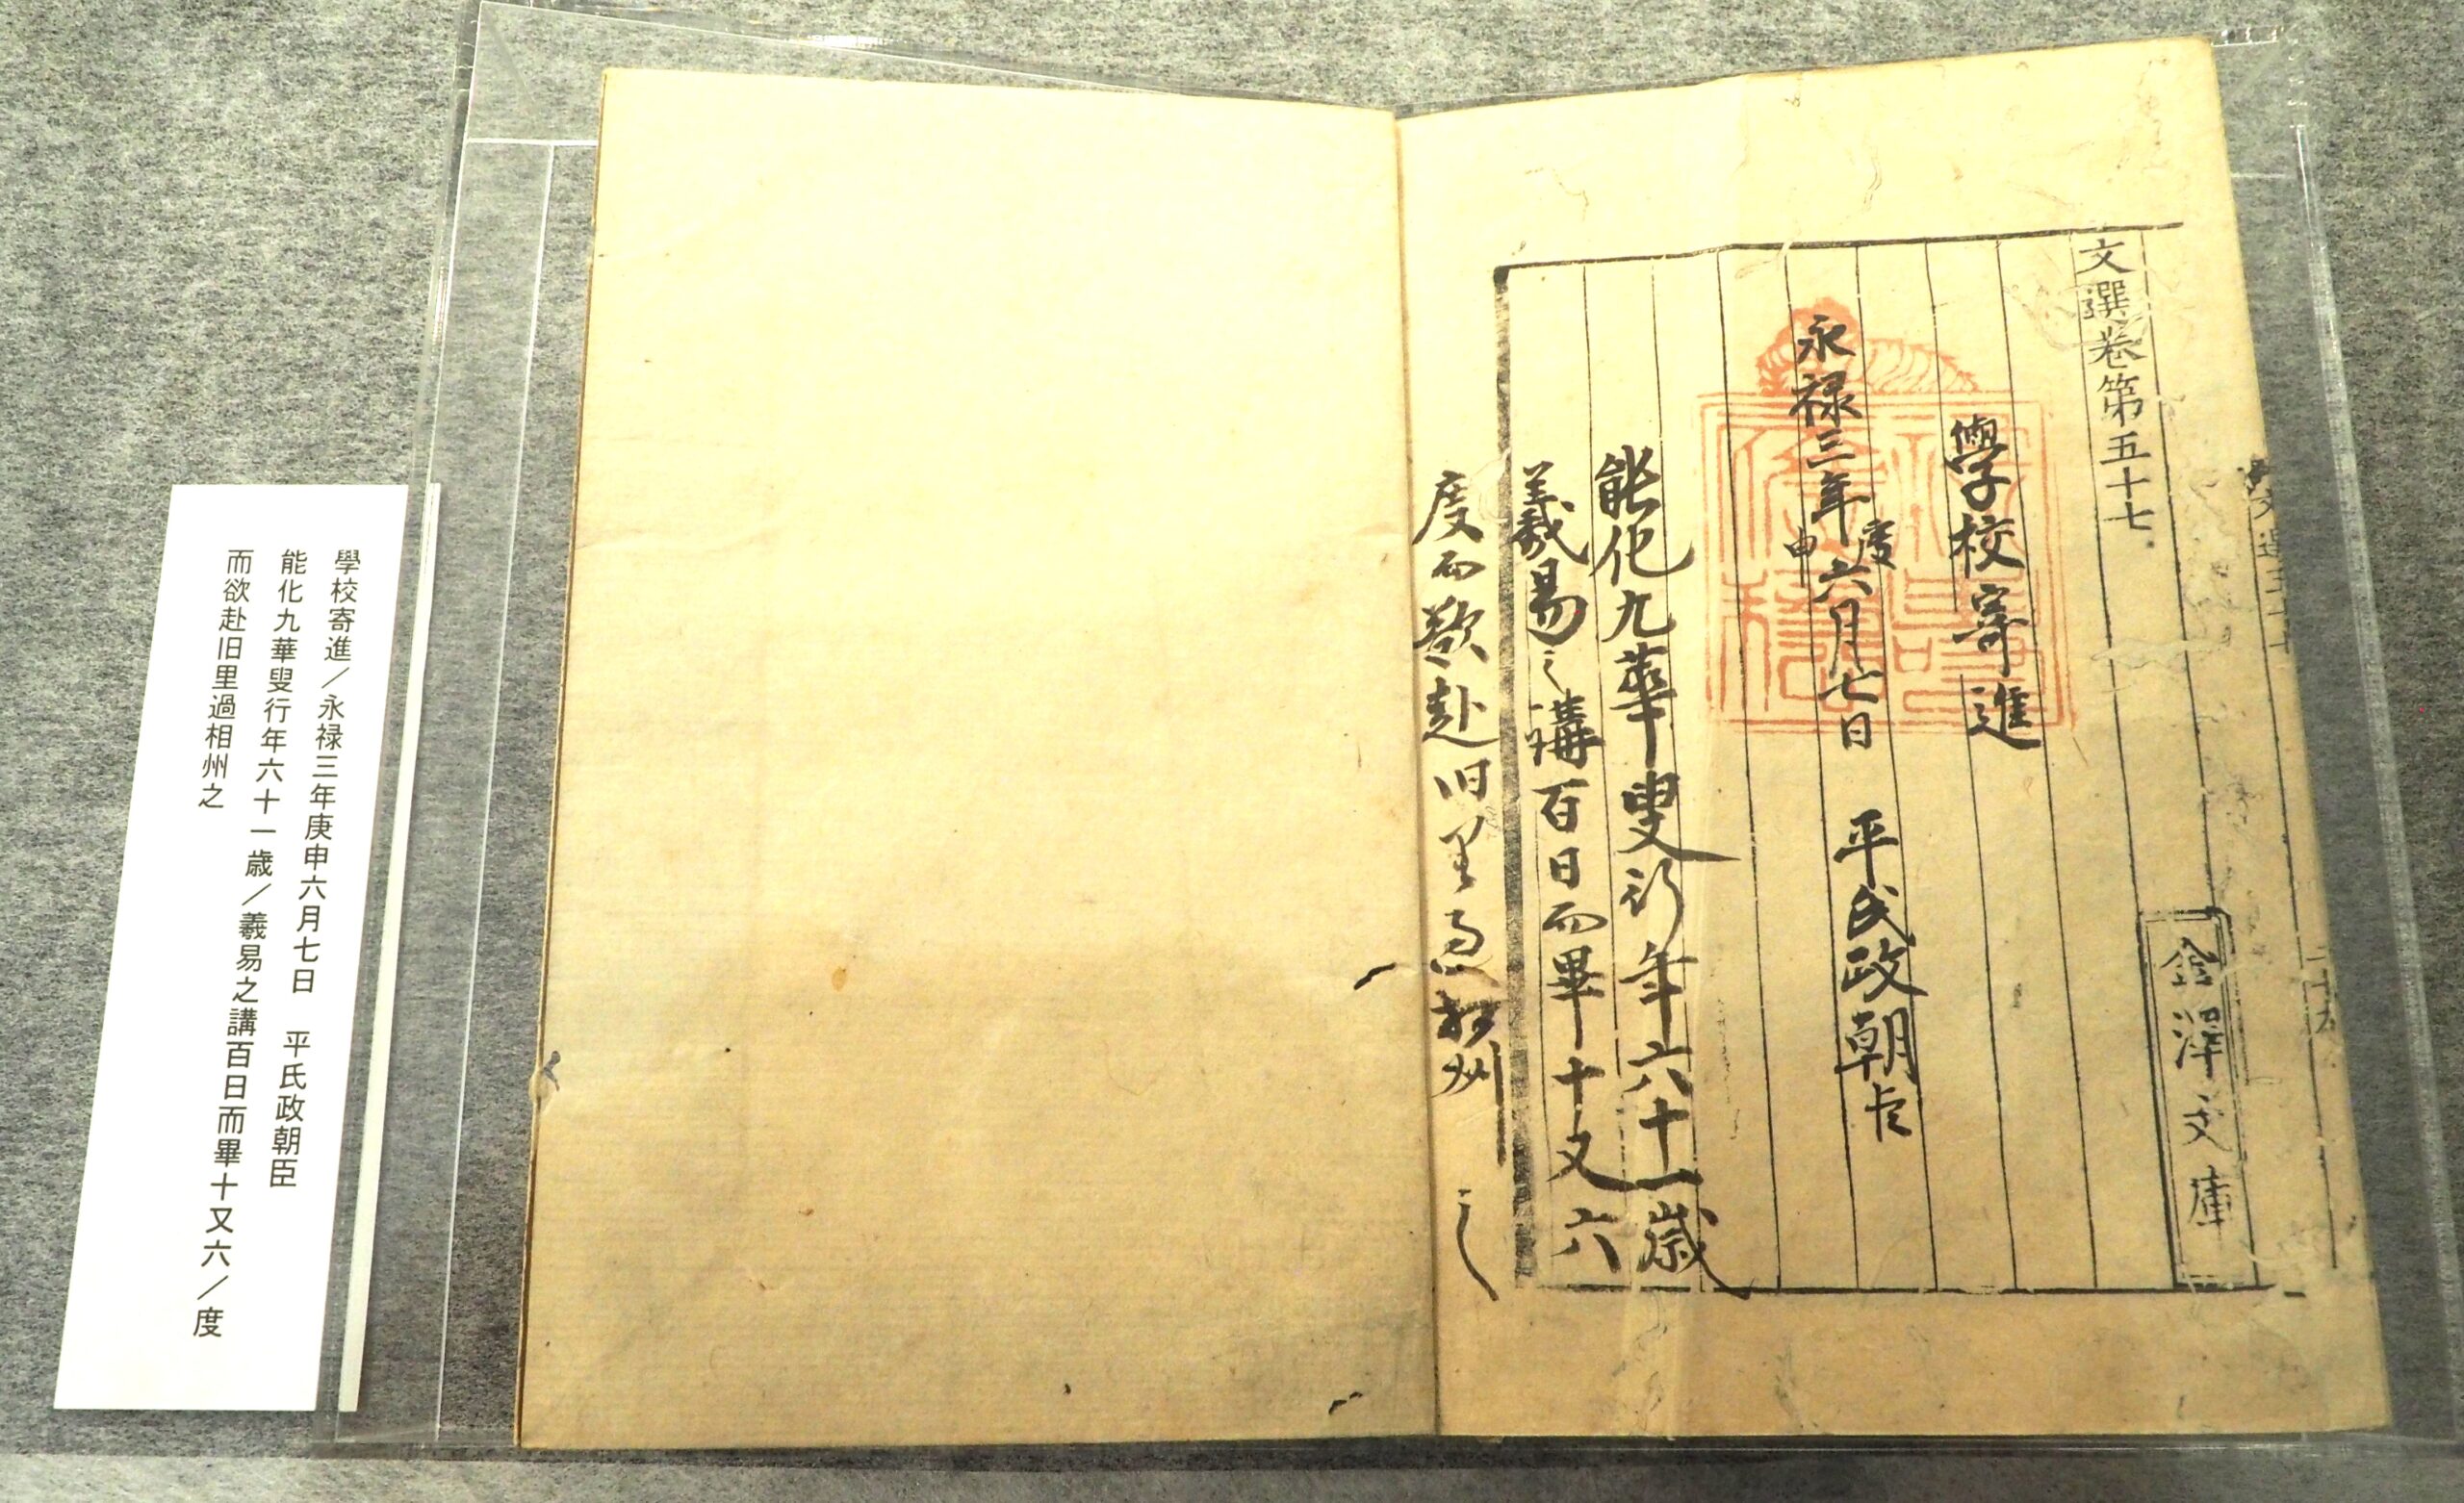 文選卷第五十七
金澤文庫
學校寄進
永禄三年庚申六月七日　平氏政朝臣
能化九華叟行年六十一歳
羲易之講百日而畢十又六
度而欲赴旧里過相州之
學校寄進／永禄三年庚申六月七日　平氏政朝臣
能化九華叟行年六十一歳／羲易之講百日而畢十又六／度
而欲赴旧里過相州之